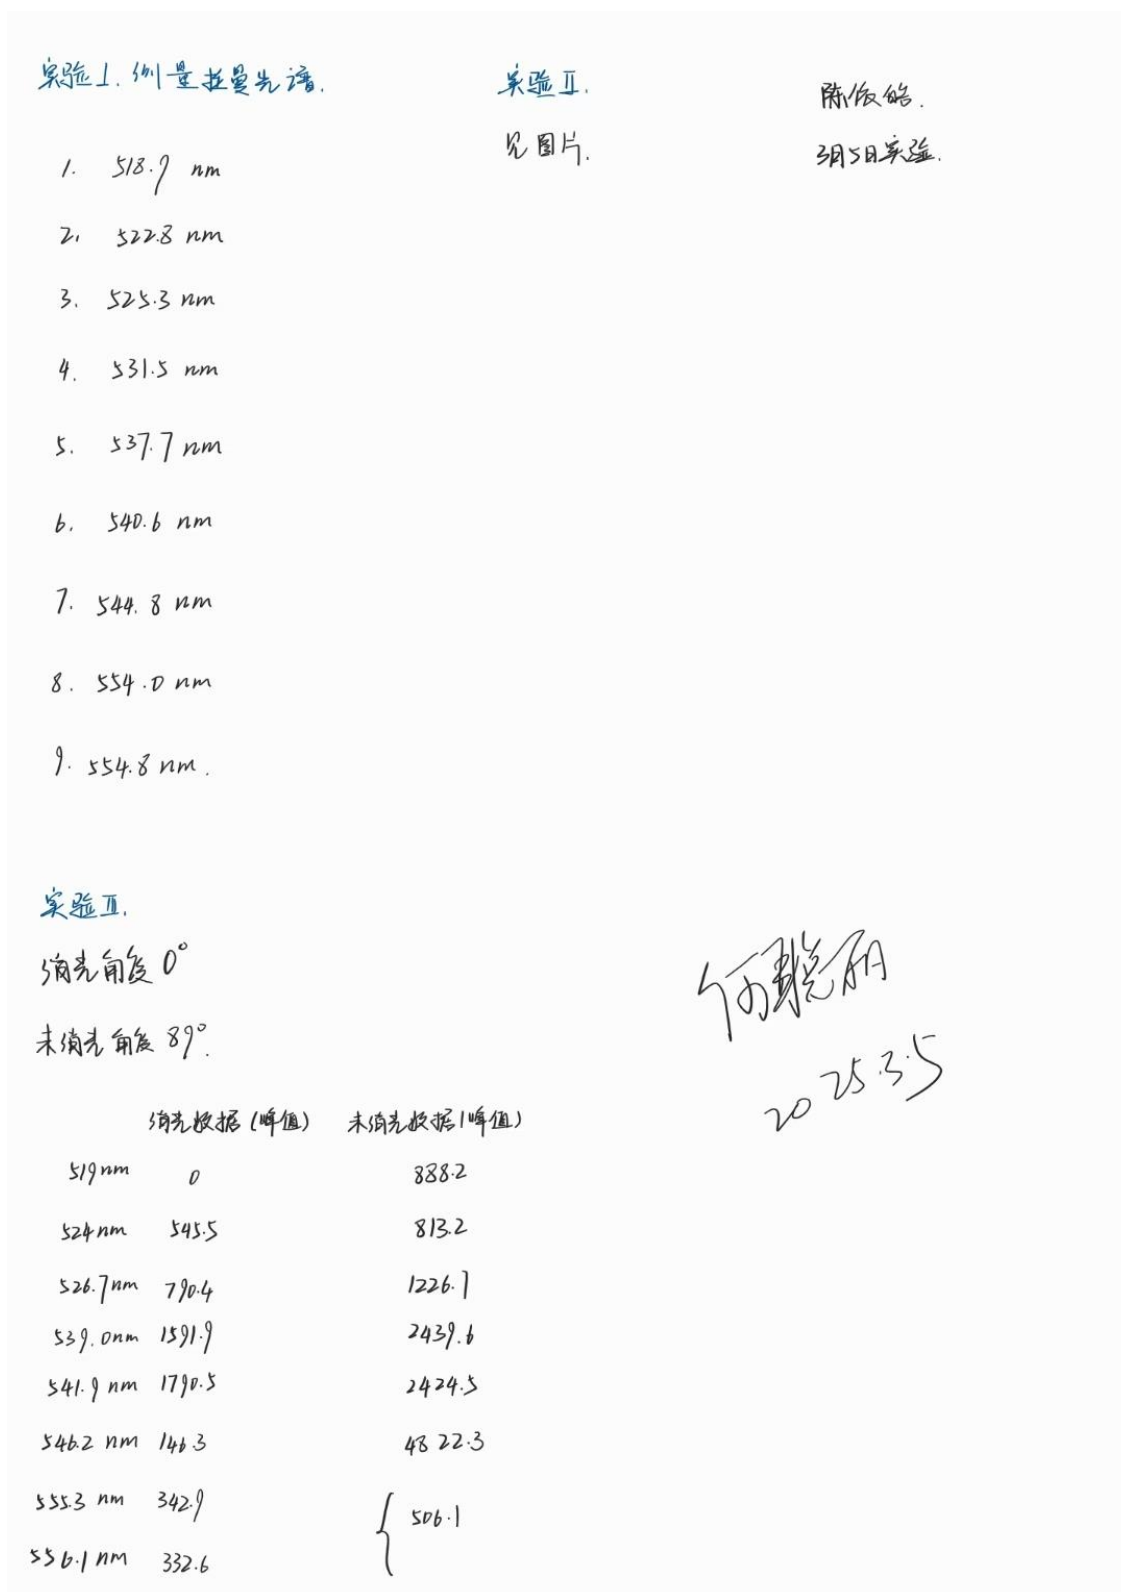 实验Ⅰ.测量拉曼光谱.
1. 518.9 nm
2. 522.8 nm
3. 525.3 nm
4. 531.5 nm
5. 537.7 nm
6. 540.6 nm
7. 544.8 nm
8. 554.0 nm
9. 554.8 nm.
实验Ⅱ.
见图片.
陈俊皓.
3月5日实验.
实验Ⅲ.
消光角度 0°
未消光角度 89°.
消光数据(峰值) 未消光数据(峰值)
519nm 0 888.2
524nm 545.5 813.2
526.7nm 790.4 1226.7
539.0nm 1591.9 2439.6
541.9 nm 1790.5 2424.5
546.2 nm 146.3 4822.3
555.3 nm 342.9 { 506.1
556.1 nm 332.6
何晓丽
2025.3.5